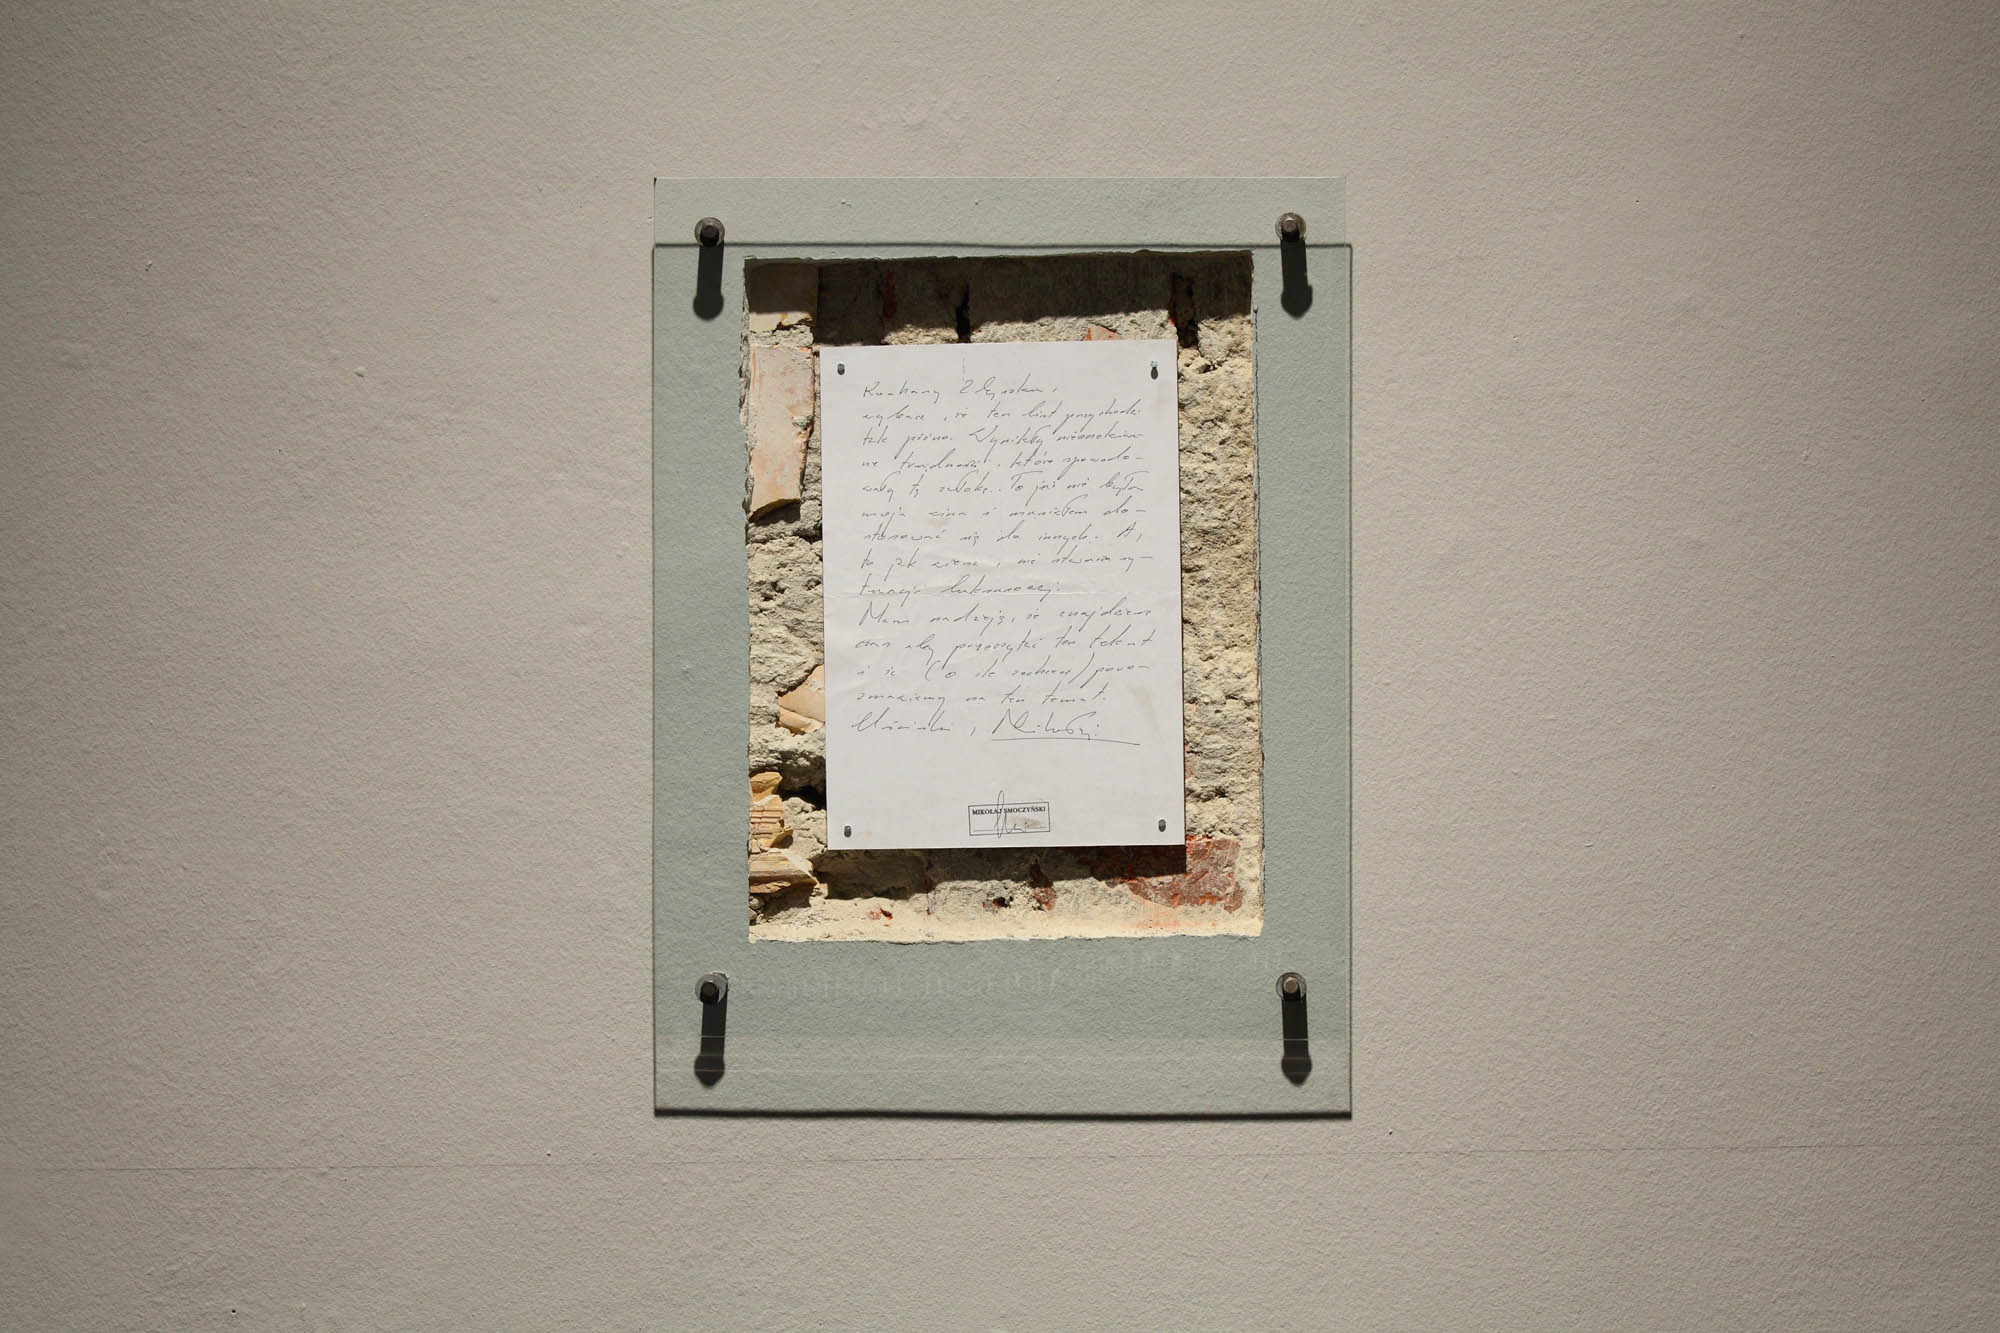 Kochany Zbyszku,
wybacz, że ten list przychodzi
tak późno. Wynikły nieoczekiwa-
ne trudności, które spowodo-
wały tę zwłokę. To już nie była
moja wina i musiałem do-
stosować się do innych. A,
to jak wiesz, nie stwarza sy-
tuacji luksusowej.
Mam nadzieję, że znajdziesz
czas aby przeczytać ten tekst
i że (o ile zechcesz) poro-
zmawiamy na ten temat.
Uściski, Mikołaj
MIKOŁAJ SMOCZYŃSKI